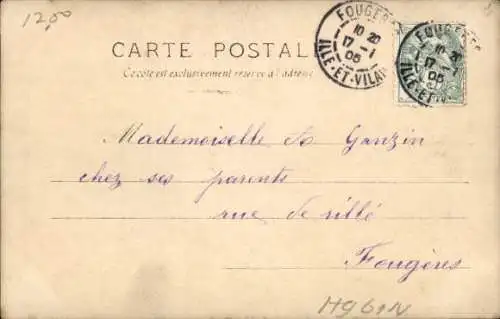 12,00
CARTE POSTALE
Ce côté est exclusivement réservé à l'adresse
FOUGÈRES
10 20
17 - 1
05
ILLE-ET-VILAINE
FOUGÈRES
10 20
17 - 1
05
ILLE-ET-V
Mademoiselle A Ganzin
chez ses parents
rue de rillé
Fougères